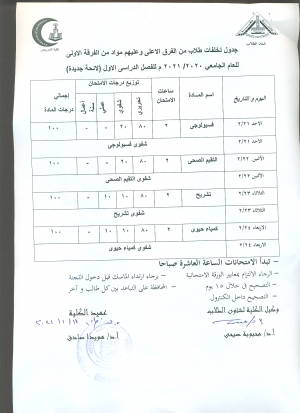 شئون الطلاب
جدول تخلفات طلاب من الفرق الاعلى وعليهم مواد من الفرقة الاولى
للعام الجامعي ٢٠٢٠/ ٢٠٢١ م للفصل الدراسى الاول (لائحة جديدة)
اليوم والتاريخ اسم المادة ساعات الامتحان توزيع درجات الامتحان إجمالي درجات المادة
تحريري شفوي عملي أعمال سنة
الاحد ٢/٢١ فسيولوجى ٢ ٨٠ ٢٠ - - ١٠٠
الاحد ٢/٢١ شفوى فسيولوجى
الاثنين ٢/٢٢ التقيم الصحى ٢ ٨٠ ٢٠ - - ١٠٠
الاثنين ٢/٢٢ شفوى التقيم الصحى
الثلاثاء ٢/٢٣ تشريح ٢ ٨٠ ١٠ ١٠ - ١٠٠
الثلاثاء ٢/٢٣ شفوى تشريح
الاربعاء ٢/٢٤ كمياء حيوى ٢ ٨٠ ١٠ ١٠ - ١٠٠
الاربعاء ٢/٢٤ شفوى كمياء حيوى
– تبدأ الامتحانات الساعة العاشرة صباحا
– الرجاء الالتزام بمعايير الورقة الامتحانية
– برجاء ارتداء الماسك قبل دخول اللجنة
– التصحيح فى خلال ١٥ يوم
– المحافظة على التباعد بين كل طالب و آخر
– التصحيح داخل الكنترول
وكيل الكلية لشئون الطلاب
عميد الكلية
أ.د/ محبوبة صبحى
أ.د/ هويدا صادق